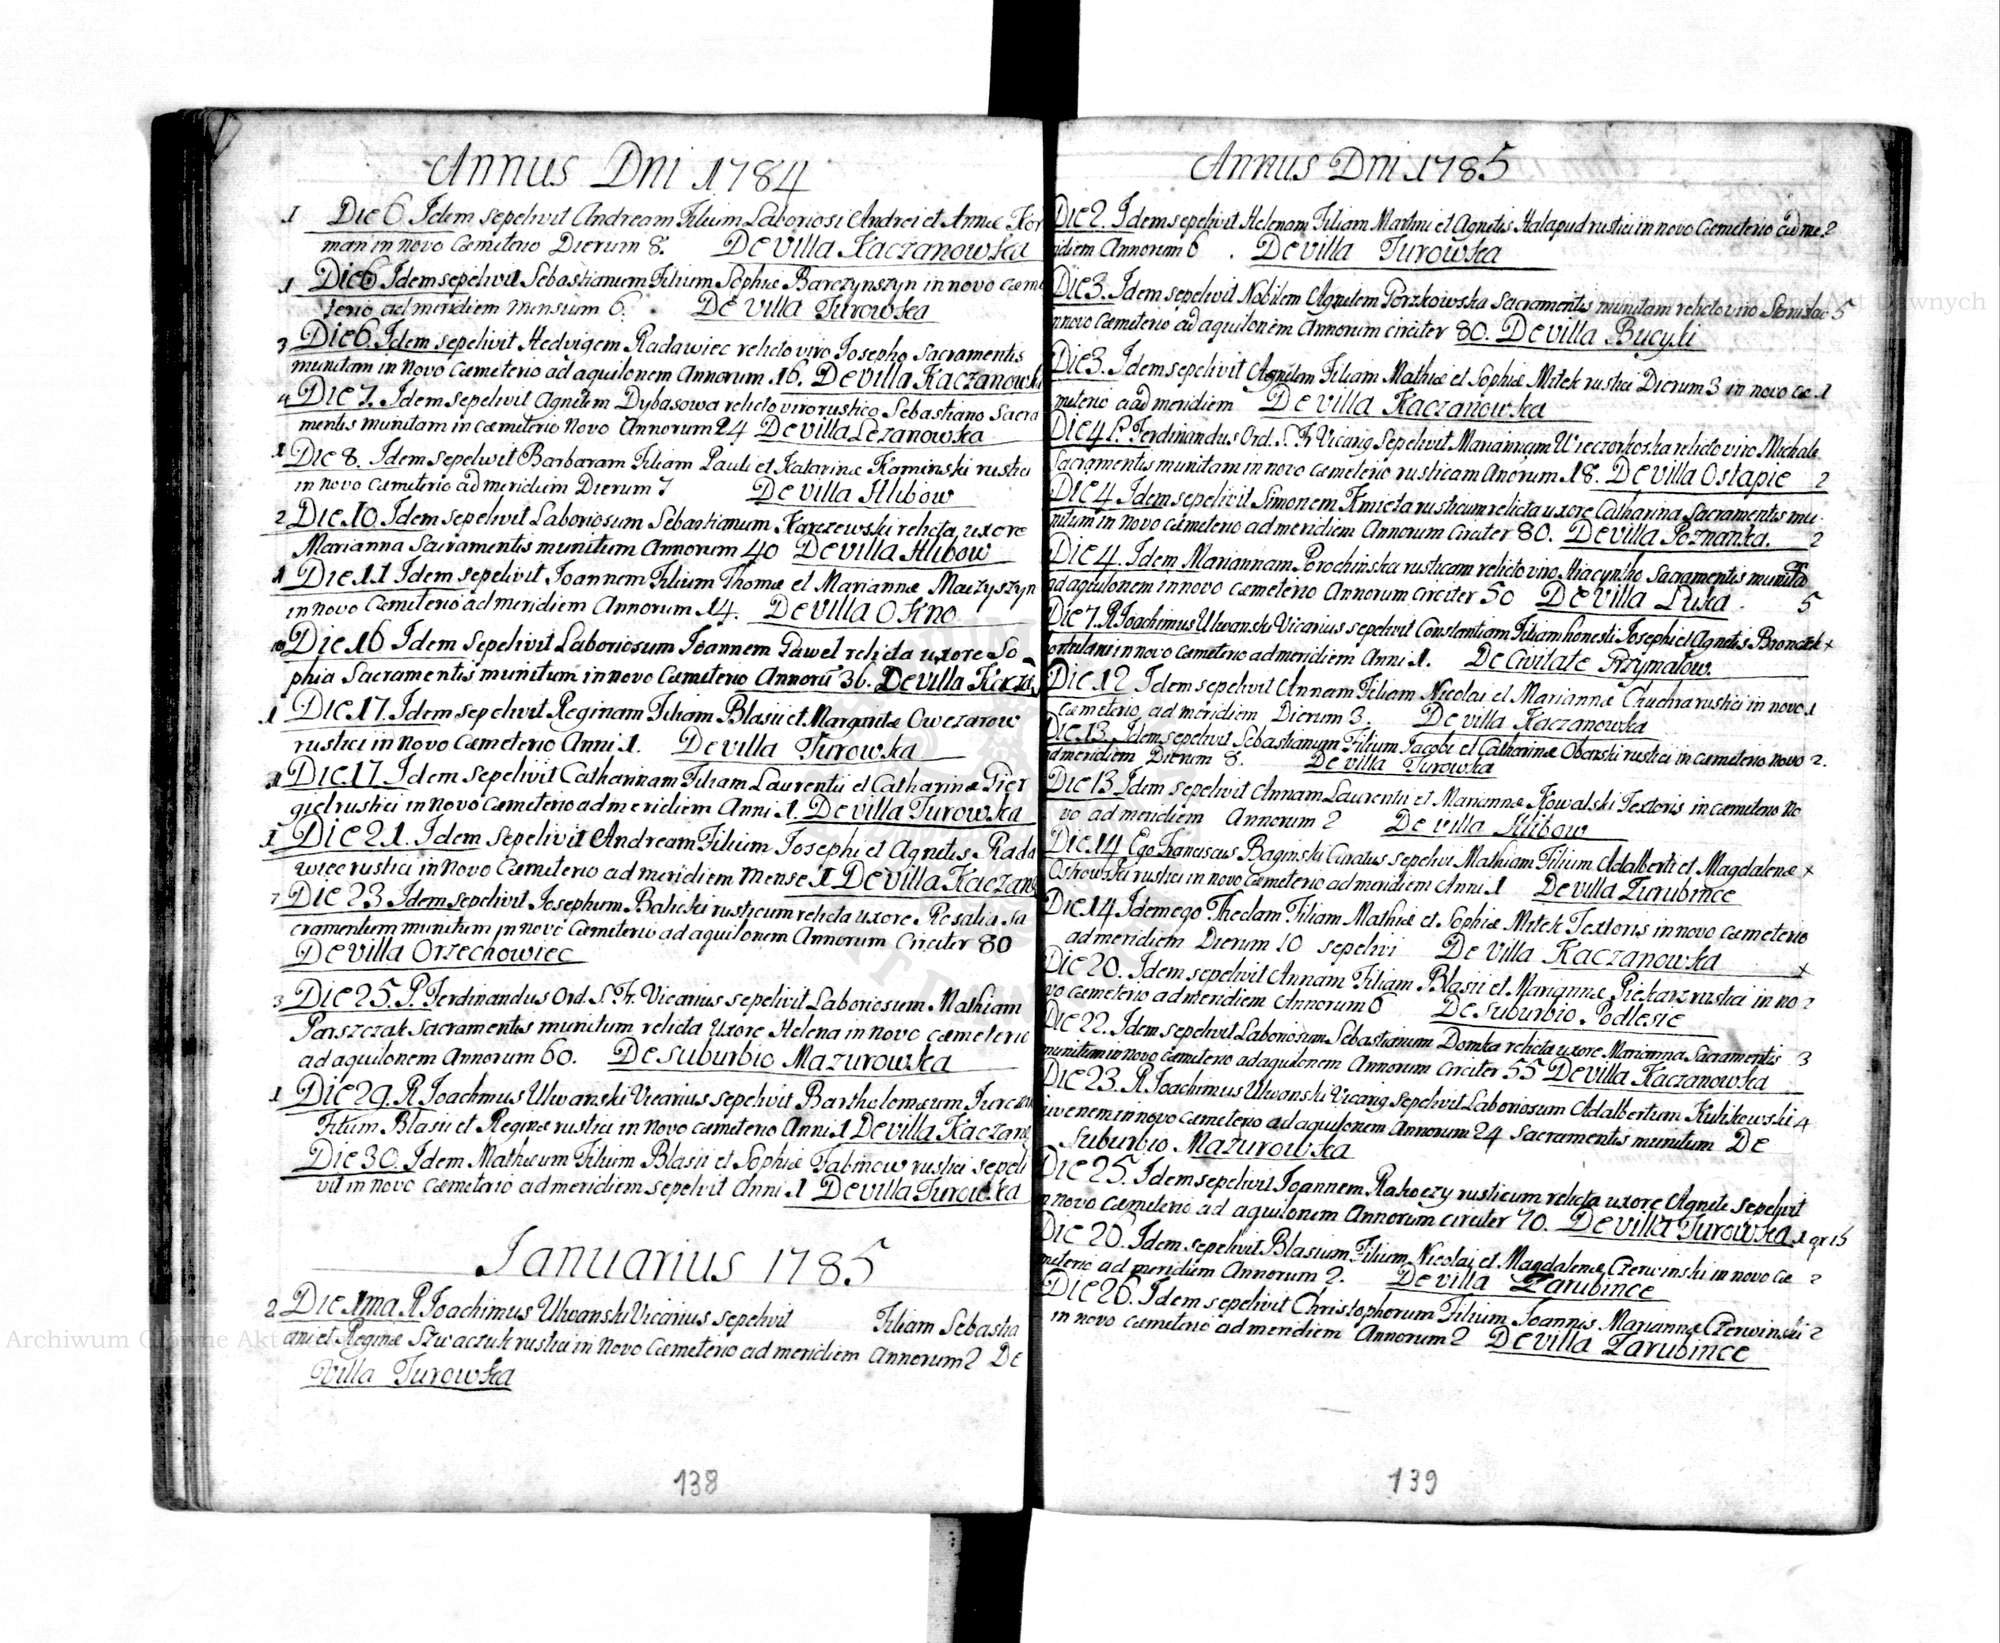 Annus Dni 1784
1 Die 6. Idem sepelivit Andream Filium Laboriosi Andrei et Annæ Kor
man in novo Cæmeterio Dierum 8. De villa Kaczanowka
1 Die 6 Idem sepelivit Sebastianum Filium Sophiæ Barczynszyn in novo cæme
terio ad meridiem Mensium 6. De villa Turowka
3 Die 6. Idem sepelivit Hedvigem Radawiec relicto viro Josepho Sacramentis
munitam in Novo Cæmeterio ad aquilonem Annorum 16. De villa Kaczanowk
4 Die 7. Idem sepelivit Agnetem Dybasowa relicto viro rustico Sebastiano Sacra
mentis munitam in cæmeterio Novo Annorum 24 De villa Lezanowka
1 Die 8. Idem sepelivit Barbaram Filiam Pauli et Katarinæ Kaminski rustici
in novo Cæmeterio ad meridiem Dierum 7 De villa Hlibow
2 Die 10. Idem sepelivit Laboriosum Sebastianum Karczewski relicta uxore
Marianna Sacramentis munitum Annorum 40 De villa Hlibow
1 Die 11 Idem sepelivit Joannem Filium Thomæ et Mariannæ Maczyszyn
in novo Cæmeterio ad meridiem Annorum 14. De villa Okno
Die 16 Idem sepelivit Laboriosum Joannem Pawel relicta uxore So
phia Sacramentis munitum in novo Cæmeterio Annorū 36. De villa Kacza
1 Die 17. Idem sepelivit Reginam Filiam Blasii et Margaritæ Owczarow
rustici in novo Cæmeterio Anni 1. De villa Turowka
1 Die 17 Idem sepelivit Catharinam Filiam Laurentii et Catharinæ Gier
giel rustici in novo Cæmeterio ad meridiem Anni 1. De villa Turowka
1 Die 21. Idem sepelivit Andream Filium Josephi et Agnetis Rada
wiec rustici in Novo Cæmeterio ad meridiem Mense 1 De villa Kaczan
7 Die 23 Idem sepelivit Josephum Balicki rusticum relicta uxore Rosalia sa
cramentum munitum in novo Cæmeterio ad aquilonem Annorum Circiter 80
De villa Orzechowiec
3 Die 25. P. Ferdinandus Ord. S. Fr. Vicarius sepelivit Laboriosum Mathiam
Parszczak Sacramentis munitum relicta uxore Helena in novo cæmeterio
ad aquilonem Annorum 60. De suburbio Mazurowka
1 Die 29. R. Joachimus Ulwanski Vicarius sepelivit Bartholomæum
Filium Blasii et Reginæ rustici in Novo cæmeterio Anni 1 De villa Kaczan
Die 30. Idem Mathæum Filium Blasii et Sophiæ Fabinow rustici sepeli
vit in novo cæmeterio ad meridiem sepelvit Anni 1 De villa Turowka
Januarius 1785
2 Die 1ma R. Joachimus Ulwanski Vicarius sepelivit Filiam Sebasti
ani et Reginæ Szwaczuk rustici in Novo Cæmeterio ad meridiem Annorum 2 De
villa Turowka
138
Annus Dni 1785
Die 2. Idem sepelivit Helenam Filiam Martini et Agnetis Halapud rustici in novo Cæmeterio ad me 2
ridiem Annorum 6 . De villa Turowka
Die 3. Idem sepelivit Nobilem Agnetem Porzkowska Sacramentis munitam relicto viro Stanislao 5
n novo cæmeterio ad aquilonem Annorum circiter 80. De villa Bucyki
Die 3. Idem sepelivit Agnetem Filiam Mathiæ et Sophiæ Mitek rustici Dierum 3 in novo cæ 1
meterio ad meridiem De villa Kaczanowka
Die 4 P. Ferdinandus Ord. S. Fr. Vicarig Sepelivit Mariannam Wieczorkoska relicto viro Michale
Sacramentis munitam in novo cæmeterio rusticam Anorum 18. De villa Ostapie 2
Die 4 Idem sepelivit Simonem Kmieta rusticum relicta uxore Catharina Sacramentis mu
nitum in novo cæmeterio ad meridiem Annorum Circiter 80. De villa Poznanka. 2
Die 4. Idem Mariannam Porochinska rusticam relicto viro Hiacyntho Sacramentis munita
ad aquilonem in novo cæmeterio Annorum circiter 50 De villa Luka . 5
Die 7. R. Joachimus Ulwanski Vicarius sepelivit Constantiam Filiam honesti Josephi et Agnetis Bronczek x
ortulani in novo cæmeterio ad meridiem Anni 1. De Civitate Grzymalow.
Die 12 Idem sepelivit Annam Filiam Nicolai et Mariannæ Chuchra rustici in novo 1
cæmeterio ad meridiem Dierum 3. De villa Kaczanowka
Die 13. Idem sepelivit Sebastianum Filium Jacobi et Catharinæ Obenski rustici in cæmeterio novo 2.
ad meridiem Dierum 8. De villa Turowka
Die 13 Idem sepelivit Annam Laurentii et Mariannæ Kowalski Textoris in cæmeterio No
vo ad meridiem Annorum 2 De villa Hlibow
Die 14 Ego Franciscus Baginski Curatus sepelivi Mathiam Filium Adalberti et Magdalenæ x
Ostrowski rustici in novo cæmeterio ad meridiem Anni 1 De villa Zarubince
Die 14 Idem ego Theclam Filiam Mathiæ et Sophiæ Mitek Textoris in novo cæmeterio
ad meridiem Dierum 10 sepelivi De villa Kaczanowka x
Die 20. Idem sepelivit Annam Filiam Blasii et Mariannæ Piekarz rustici in no 2
vo cæmeterio ad meridiem Annorum 6 De suburbio Podlesie
Die 22. Idem sepelivit Laboriosum Sebastianum Domka relicta uxore Marianna Sacramentis 3
munitum in novo cæmeterio ad aquilonem Annorum Circiter 55 De villa Kaczanowka
Die 23. R. Joachimus Ulwanski Vicarig sepelivit Laboriosum Adalbertum Kulikowski 4
juvenem in novo cæmeterio ad aquilonem Annorum 24 Sacramentis munitum De
Suburbio Mazurowka
Die 25. Idem sepelivit Joannem Rakoczy rusticum relicta uxore Agnete sepelivit
n novo Cæmeterio ad aquilonem Annorum circiter 70. De villa Turowka 1 gr 15
Die 26. Idem sepelivit Blasium Filium Nicolai et Magdalenæ Czerwinski in novo Cæ 2
meterio ad meridiem Annorum 2. De villa Zarubince
Die 26. Idem sepelivit Christophorum Filium Joannis Mariannæ Czerwinski 2
in novo cæmeterio ad meridiem Annorum 2 De villa Zarubince
139